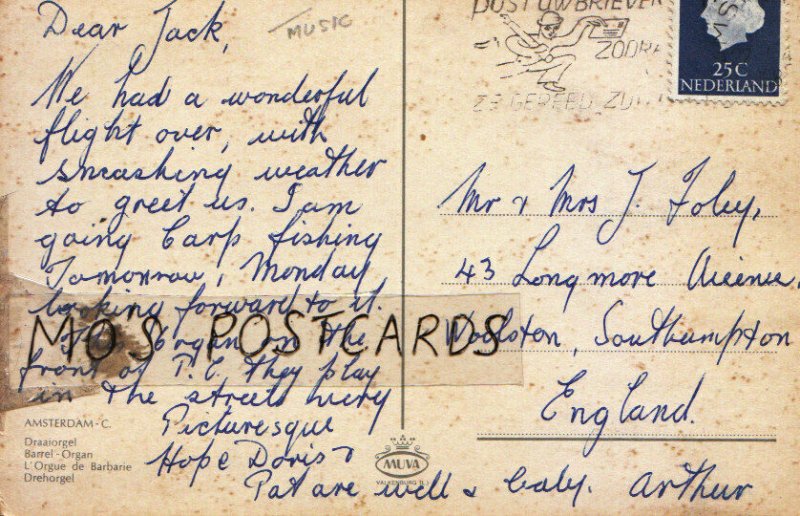 Dear Jack,
MUSIC
We had a wonderful
flight over, with
smashing weather
to greet us. I am
going Carp fishing
Tomorrow, Monday
looking forward to it.
Organ on the
front of P.C. they play
in the streets very
Picturesque
Hope Doris &
Pat are well & baby. Arthur
MOS POSTCARDS
AMSTERDAM-C.
Draaiorgel
Barrel-Organ
L'Orgue de Barbarie
Drehorgel
MUVA
VALKENBURG (L.)
POST UW BRIEVEN
ZODRA
ZE GEREED ZIJN
25C
NEDERLAND
Mr & Mrs J. Foley,
43 Longmore Avenue,
Woolston, Southampton
England.